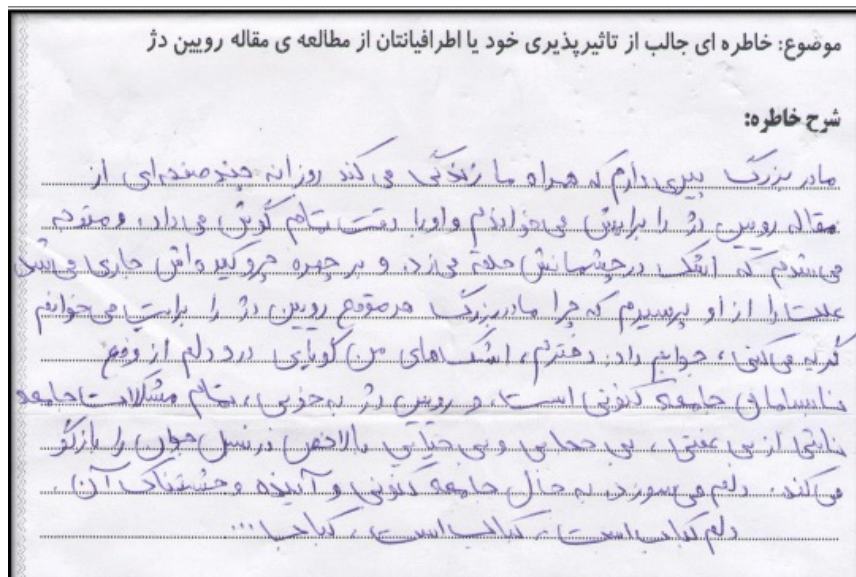 موضوع: خاطره ای جالب از تاثیرپذیری خود یا اطرافیانتان از مطالعه ی مقاله رویین دژ
شرح خاطره:
مادر بزرگ پیری دارم که همراه ما زندگی می کند روزانه چند صفحه ای از
مقاله رویین دژ را برایش می خواندم و او با دقت تمام گوش می داد، و متوجه
می شدم که اشک در چشمانش حلقه می زد و بر چهره چروکیده اش جاری می شد
علت را از او پرسیدم که چرا مادربزرگ هر موقع رویین دژ را برایت می خوانم
گریه می کنی، جوابم داد: دخترم، اشک های من گویایی درد دلم از وضع
نابسامان جامعه کنونی است، و رویین دژ به خوبی، تمام مشکلات جامعه
ناشی از بی عفتی، بی حجابی و بی حیایی بالاخص در نسل جوان را بازگو
می کند. دلم می سوزد به حال جامعه کنونی و آینده وحشتناک آن.
دلم کباب است، کباب است، کباب...